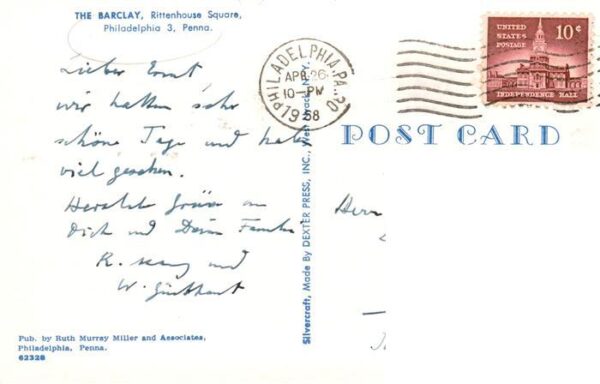 THE BARCLAY, Rittenhouse Square,
Philadelphia 3, Penna.
Lieber Ernst
wir hatten sehr
schöne Tage und habe
viel gesehen.
Herzliche Grüsse an
Dich und Deine Familie
R. und
W.
Pub. by Ruth Murray Miller and Associates,
Philadelphia, Penna.
62328
Silvercraft, Made By DEXTER PRESS, INC., West Nyack, N.Y.
PHILADELPHIA, PA.
APR 26
10-PM
1958
UNITED STATES POSTAGE
10¢
INDEPENDENCE HALL
POST CARD
Herr